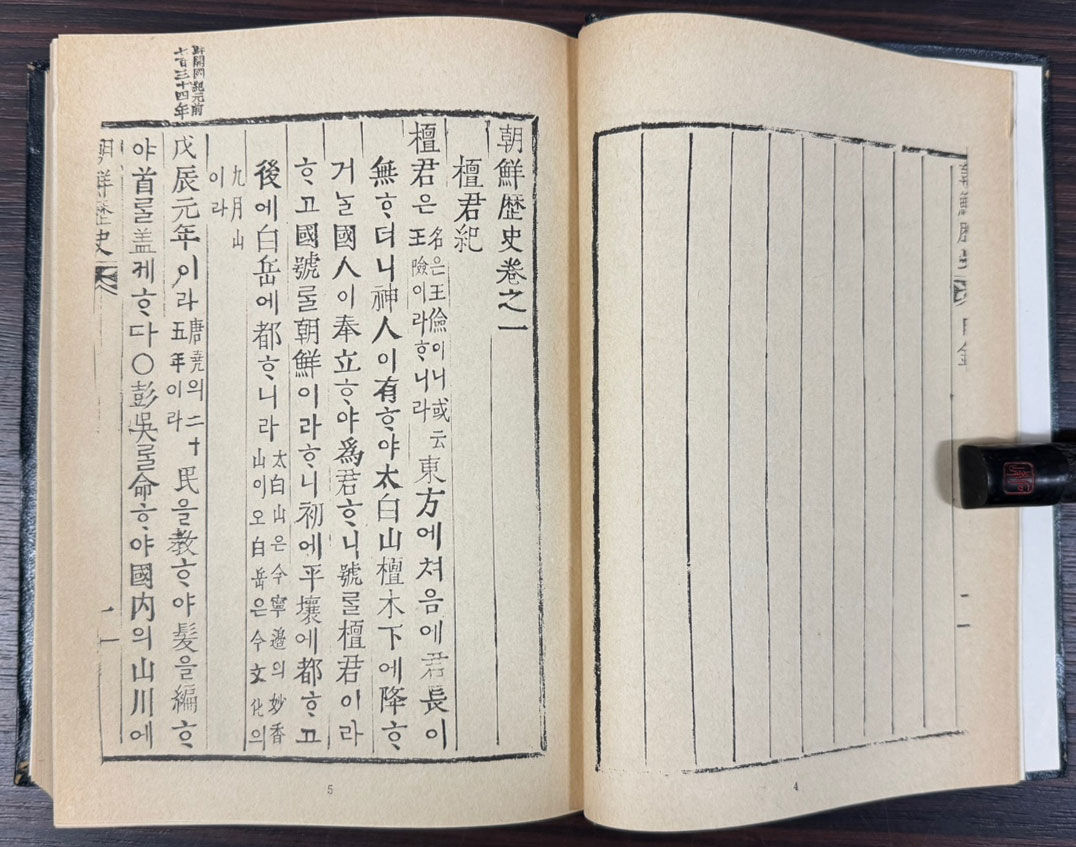 朝鮮歴史卷之一
檀君紀
檀君은名은王儉이니或云
王險이라ᄒᆞ니라
東方에쳐음에君長이
無ᄒᆞ더니神人이有ᄒᆞ야太白山檀木下에降ᄒᆞ
거ᄂᆞᆯ國人이奉立ᄒᆞ야爲君ᄒᆞ니號ᄅᆞᆯ檀君이라
ᄒᆞ고國號ᄅᆞᆯ朝鮮이라ᄒᆞ니初에平壤에都ᄒᆞ고
後에白岳에都ᄒᆞ니라太白山은今寧邊의妙香
山이오白岳은今文化의
九月山
이라
開國紀元前
七百三十四年
戊辰元年이라唐堯의二十
五年이라
民을教ᄒᆞ야髮을編ᄒᆞ
야首ᄅᆞᆯ盖케ᄒᆞ다○彭吳ᄅᆞᆯ命ᄒᆞ야國内의山川에
朝鮮歷史
一
5
4